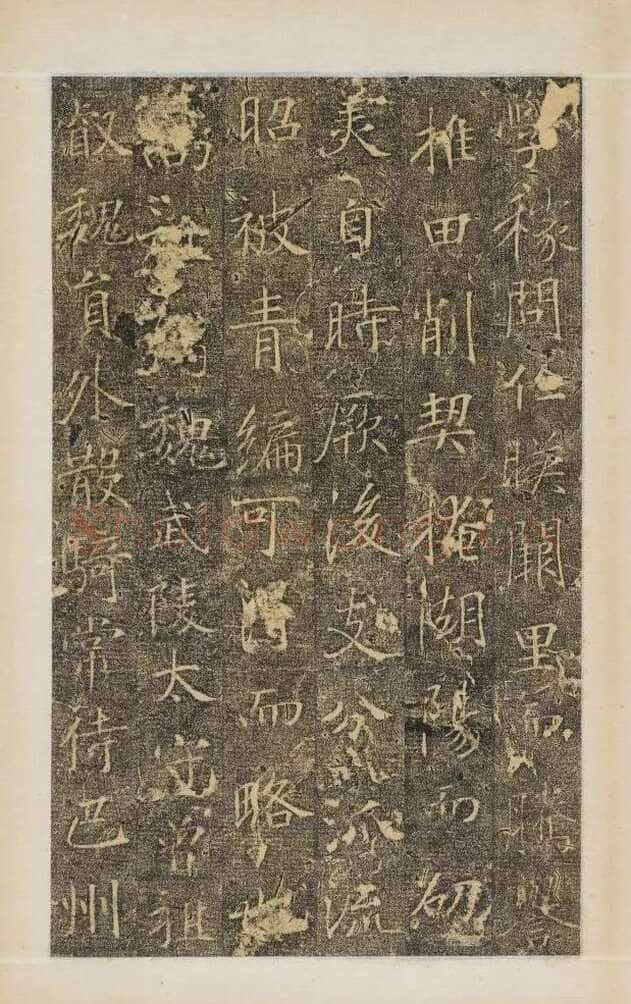 學稼問仁闕里而騰
推田削契掩湖陽而劭
美自時厥後支分派流
昭被青編可得而略也
高祖魏武陵太守曾祖
叡魏員外散騎常侍巴州